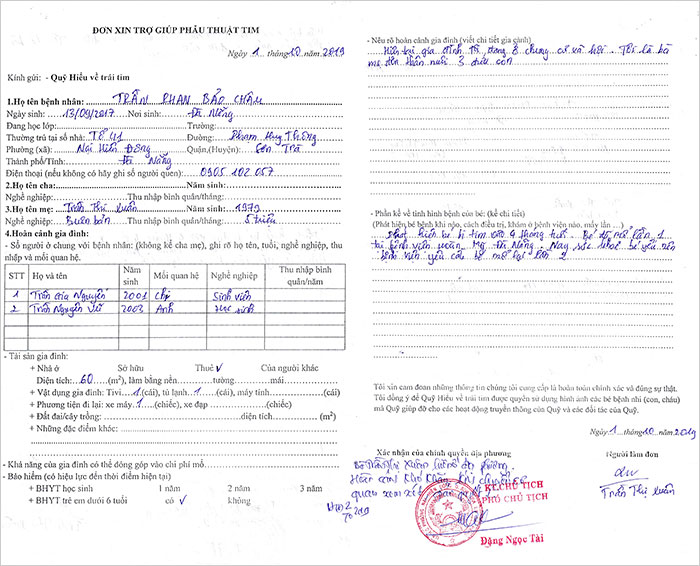 ĐƠN XIN TRỢ GIÚP PHẪU THUẬT TIM
Ngày 1 tháng 10 năm 2019
Kính gửi: - Quỹ Hiểu về trái tim
1.Họ tên bệnh nhân: TRẦN PHAN BẢO CHÂU
Ngày sinh: 13/09/2017 Nơi sinh: Đà Nẵng
Đang học lớp: Trường:
Thường trú tại số nhà: Tổ 41 Đường: Phạm Huy Thông
Phường (xã): Nại Hiên Đông Quận,(Huyện): Sơn Trà
Thành phố/Tỉnh: Đà Nẵng
Điện thoại (nếu không có hãy ghi số người quen): 0905 102 057
2.Họ tên cha: Năm sinh:
Nghề nghiệp: Thu nhập bình quân/tháng:
3.Họ tên mẹ: Trần Thị Xuân 1979
Nghề nghiệp: Buôn bán Thu nhập bình quân/tháng: 5 triệu
4.Hoàn cảnh gia đình:
- Số người ở chung với bệnh nhân: (không kể cha mẹ), ghi rõ họ tên, tuổi, nghề nghiệp, thu
nhập và mối quan hệ.
STT Họ và tên Năm sinh Mối quan hệ Nghề nghiệp Thu nhập bình quân/năm
1 Trần Gia Nguyên 2001 Chị Sinh viên
2 Trần Nguyên Vũ 2003 Anh Học sinh
- Tài sản gia đình:
+ Nhà ở Sở hữu Thuê √ Của người khác
Diện tích: 60 (m²), làm bằng nền tường mái
+ Vật dụng gia đình: Tivi 1 (cái), tủ lạnh 1 (cái), máy tính (cái)
+ Phương tiện đi lại: xe máy 1 (chiếc), xe đạp (chiếc)
+ Đất đai/cây trồng: diện tích (m²)
+ Những đặc điểm khác:
- Khả năng của gia đình có thể đóng góp vào chi phí mổ
- Bảo hiểm (có hiệu lực đến thời điểm hiện tại)
+ BHYT học sinh 1 năm 2 năm 3 năm
+ BHYT trẻ em dưới 6 tuổi có √ không
- Nêu rõ hoàn cảnh gia đình (viết chi tiết gia cảnh)
Hiện tại gia đình tôi đang ở chung cư xã hội. Tôi là bà
mẹ đơn thân nuôi 3 đứa con
- Phần kể về tình hình bệnh của bé: (kể chi tiết)
(Phát hiện bé bệnh khi nào, cách điều trị, khám ở bệnh viện nào, mấy lần ...)
Phát hiện bé bị tim lúc 4 tháng tuổi. Bé đã mổ lần 1
tại bệnh viện Đà Nẵng. Nay sức khoẻ bé yếu nên
bệnh viện yêu cầu bé mổ lại lần 2
Tôi xin cam đoan những thông tin chúng tôi cung cấp là hoàn toàn chính xác và đúng sự thật.
Tôi đồng ý để Quỹ Hiểu về trái tim được quyền sử dụng hình ảnh các bé bệnh nhi (con, cháu)
mà Quỹ giúp đỡ cho các hoạt động truyền thông của Quỹ và các đối tác của Quỹ.
Ngày 1 tháng 10 năm 2019
Xác nhận của chính quyền địa phương
Người làm đơn
Trần Thị Xuân
KT.CHỦ TỊCH
PHÓ CHỦ TỊCH
Đặng Ngọc Tài